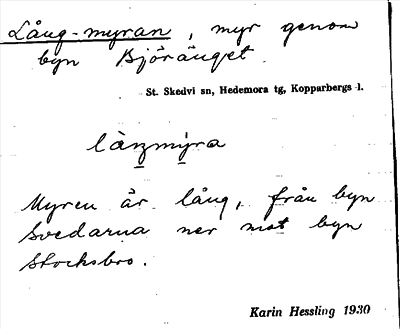 Lång-myran, myr genom
byn Björänget.
St. Skedvi sn, Hedemora tg, Kopparbergs l.
Myren är lång, från byn
Svedarna ner mot byn
Stocksbro.
Karin Hessling 1930